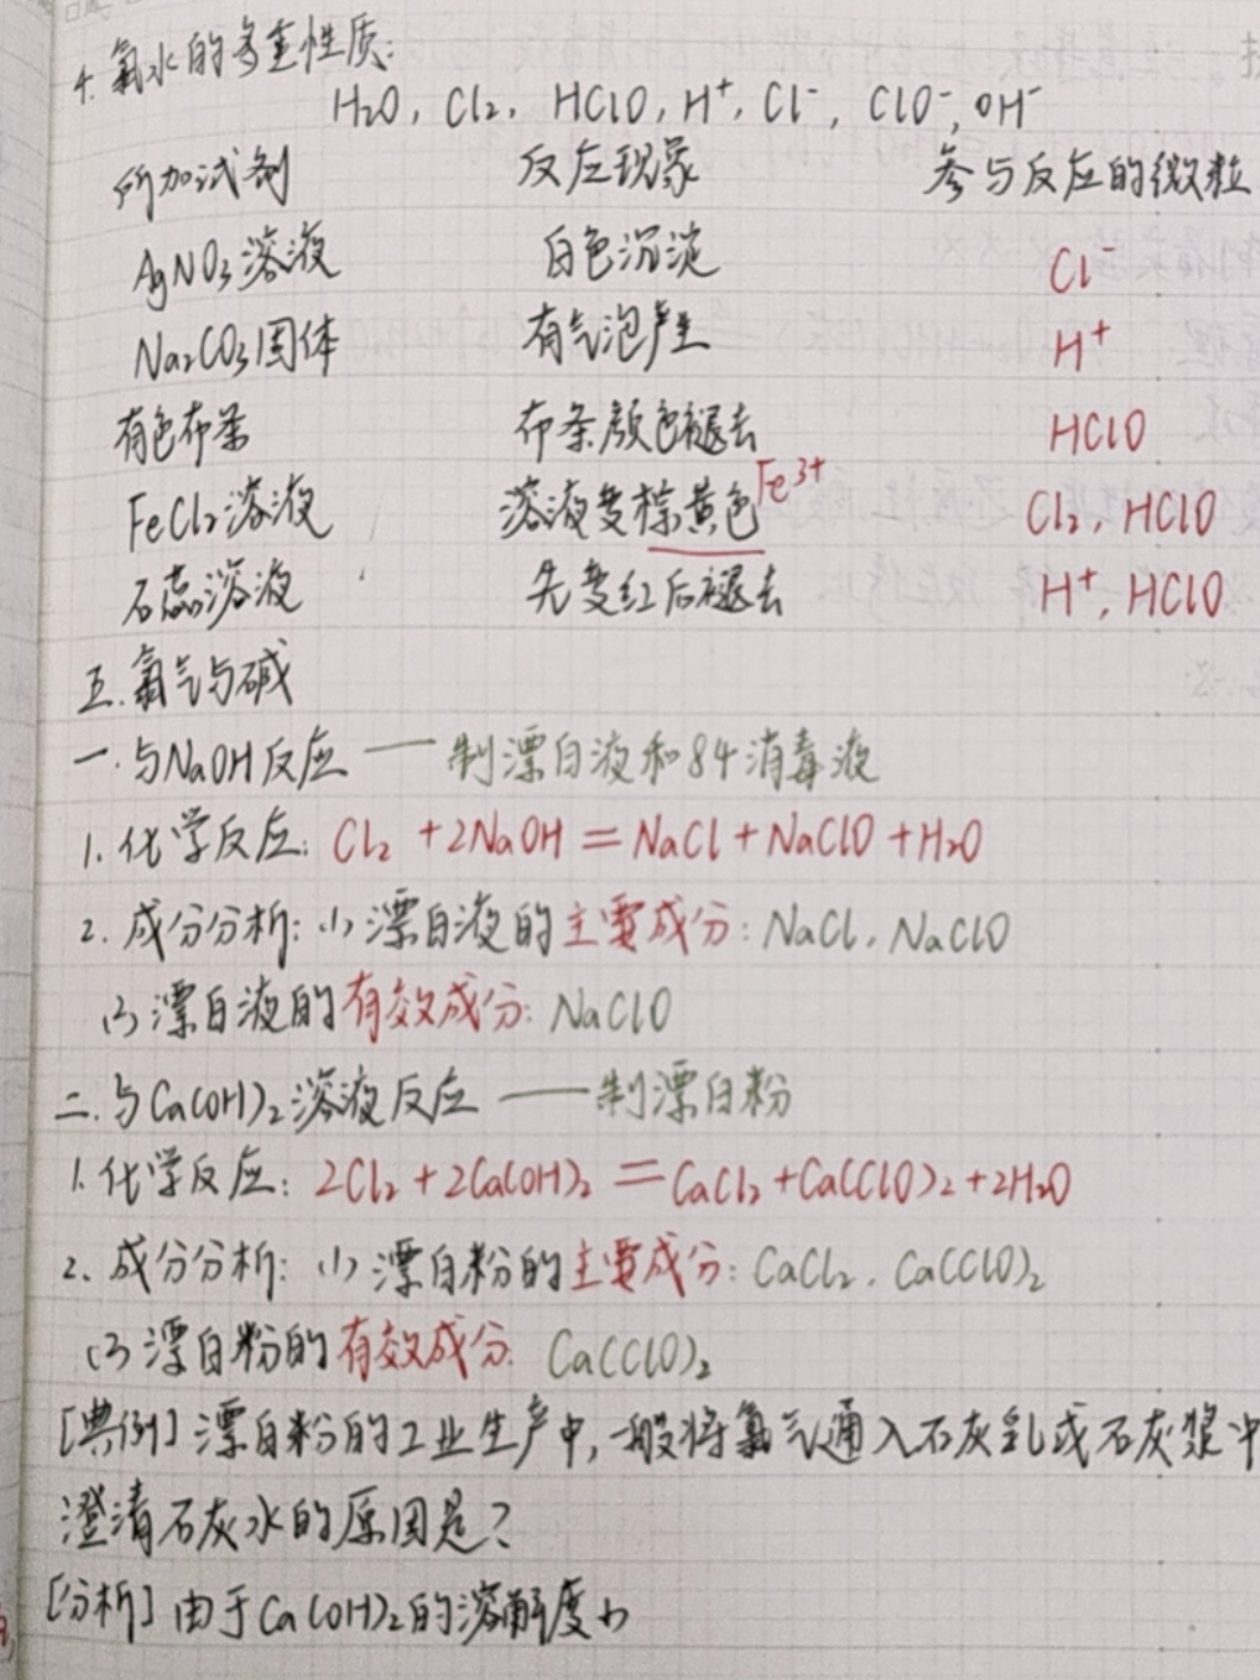 4. 氯水的多重性质:
H₂O, Cl₂, HClO, H⁺, Cl⁻, ClO⁻, OH⁻
所加试剂 反应现象 参与反应的微粒
AgNO₃溶液 白色沉淀 Cl⁻
Na₂CO₃固体 有气泡产生 H⁺
有色布条 布条颜色褪去 HClO
FeCl₂溶液 溶液变棕黄色 Fe³⁺ Cl₂, HClO
石蕊溶液 先变红后褪去 H⁺, HClO
五. 氯气与碱
一. 与NaOH反应 —— 制漂白液和84消毒液
1. 化学反应: Cl₂ + 2NaOH = NaCl + NaClO + H₂O
2. 成分分析: (1) 漂白液的主要成分: NaCl, NaClO
(2) 漂白液的有效成分: NaClO
二. 与Ca(OH)₂溶液反应 —— 制漂白粉
1. 化学反应: 2Cl₂ + 2Ca(OH)₂ = CaCl₂ + Ca(ClO)₂ + 2H₂O
2. 成分分析: (1) 漂白粉的主要成分: CaCl₂, Ca(ClO)₂
(2) 漂白粉的有效成分: Ca(ClO)₂
[典例] 漂白粉的工业生产中, 一般将氯气通入石灰乳或石灰浆中
澄清石灰水的原因是?
[分析] 由于Ca(OH)₂的溶解度小